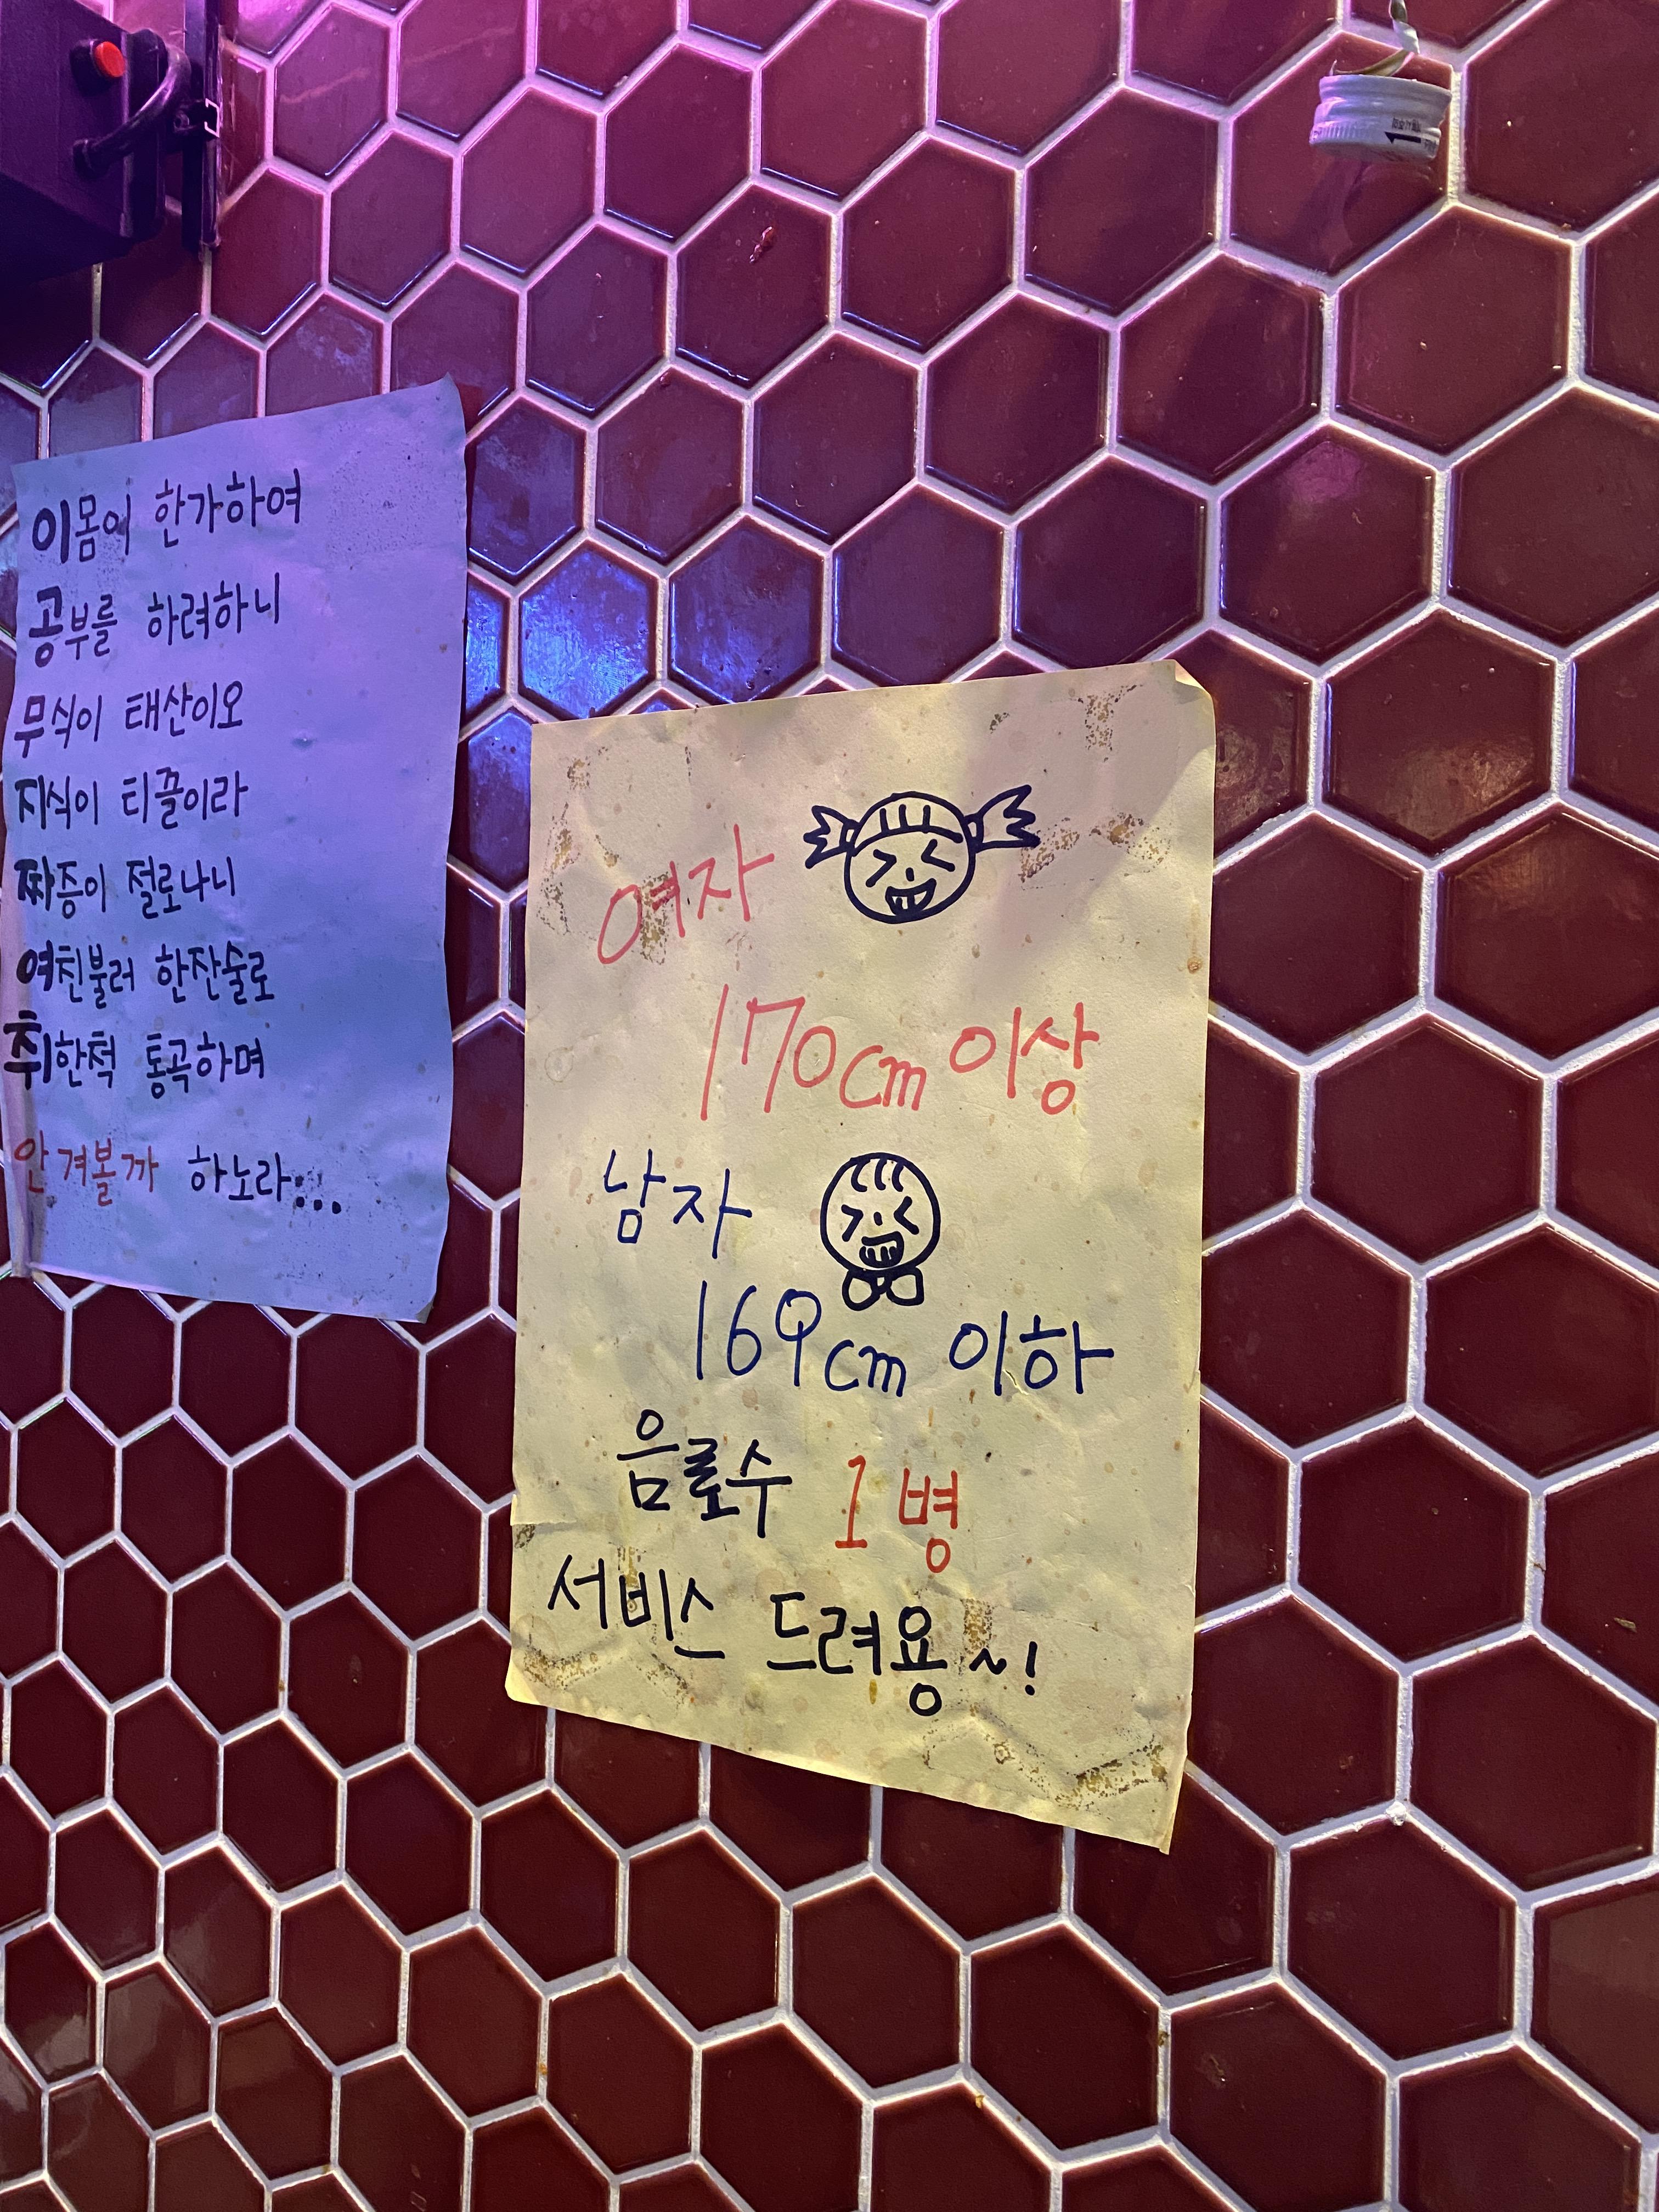 이몸이 한가하여
공부를 하려하니
무식이 태산이오
지식이 티끌이라
짜증이 절로나니
여친불러 한잔술로
취한척 통곡하며
안겨볼까 하노라...
여자
170cm 이상
남자
169cm 이하
음료수 1병
서비스 드려용~!